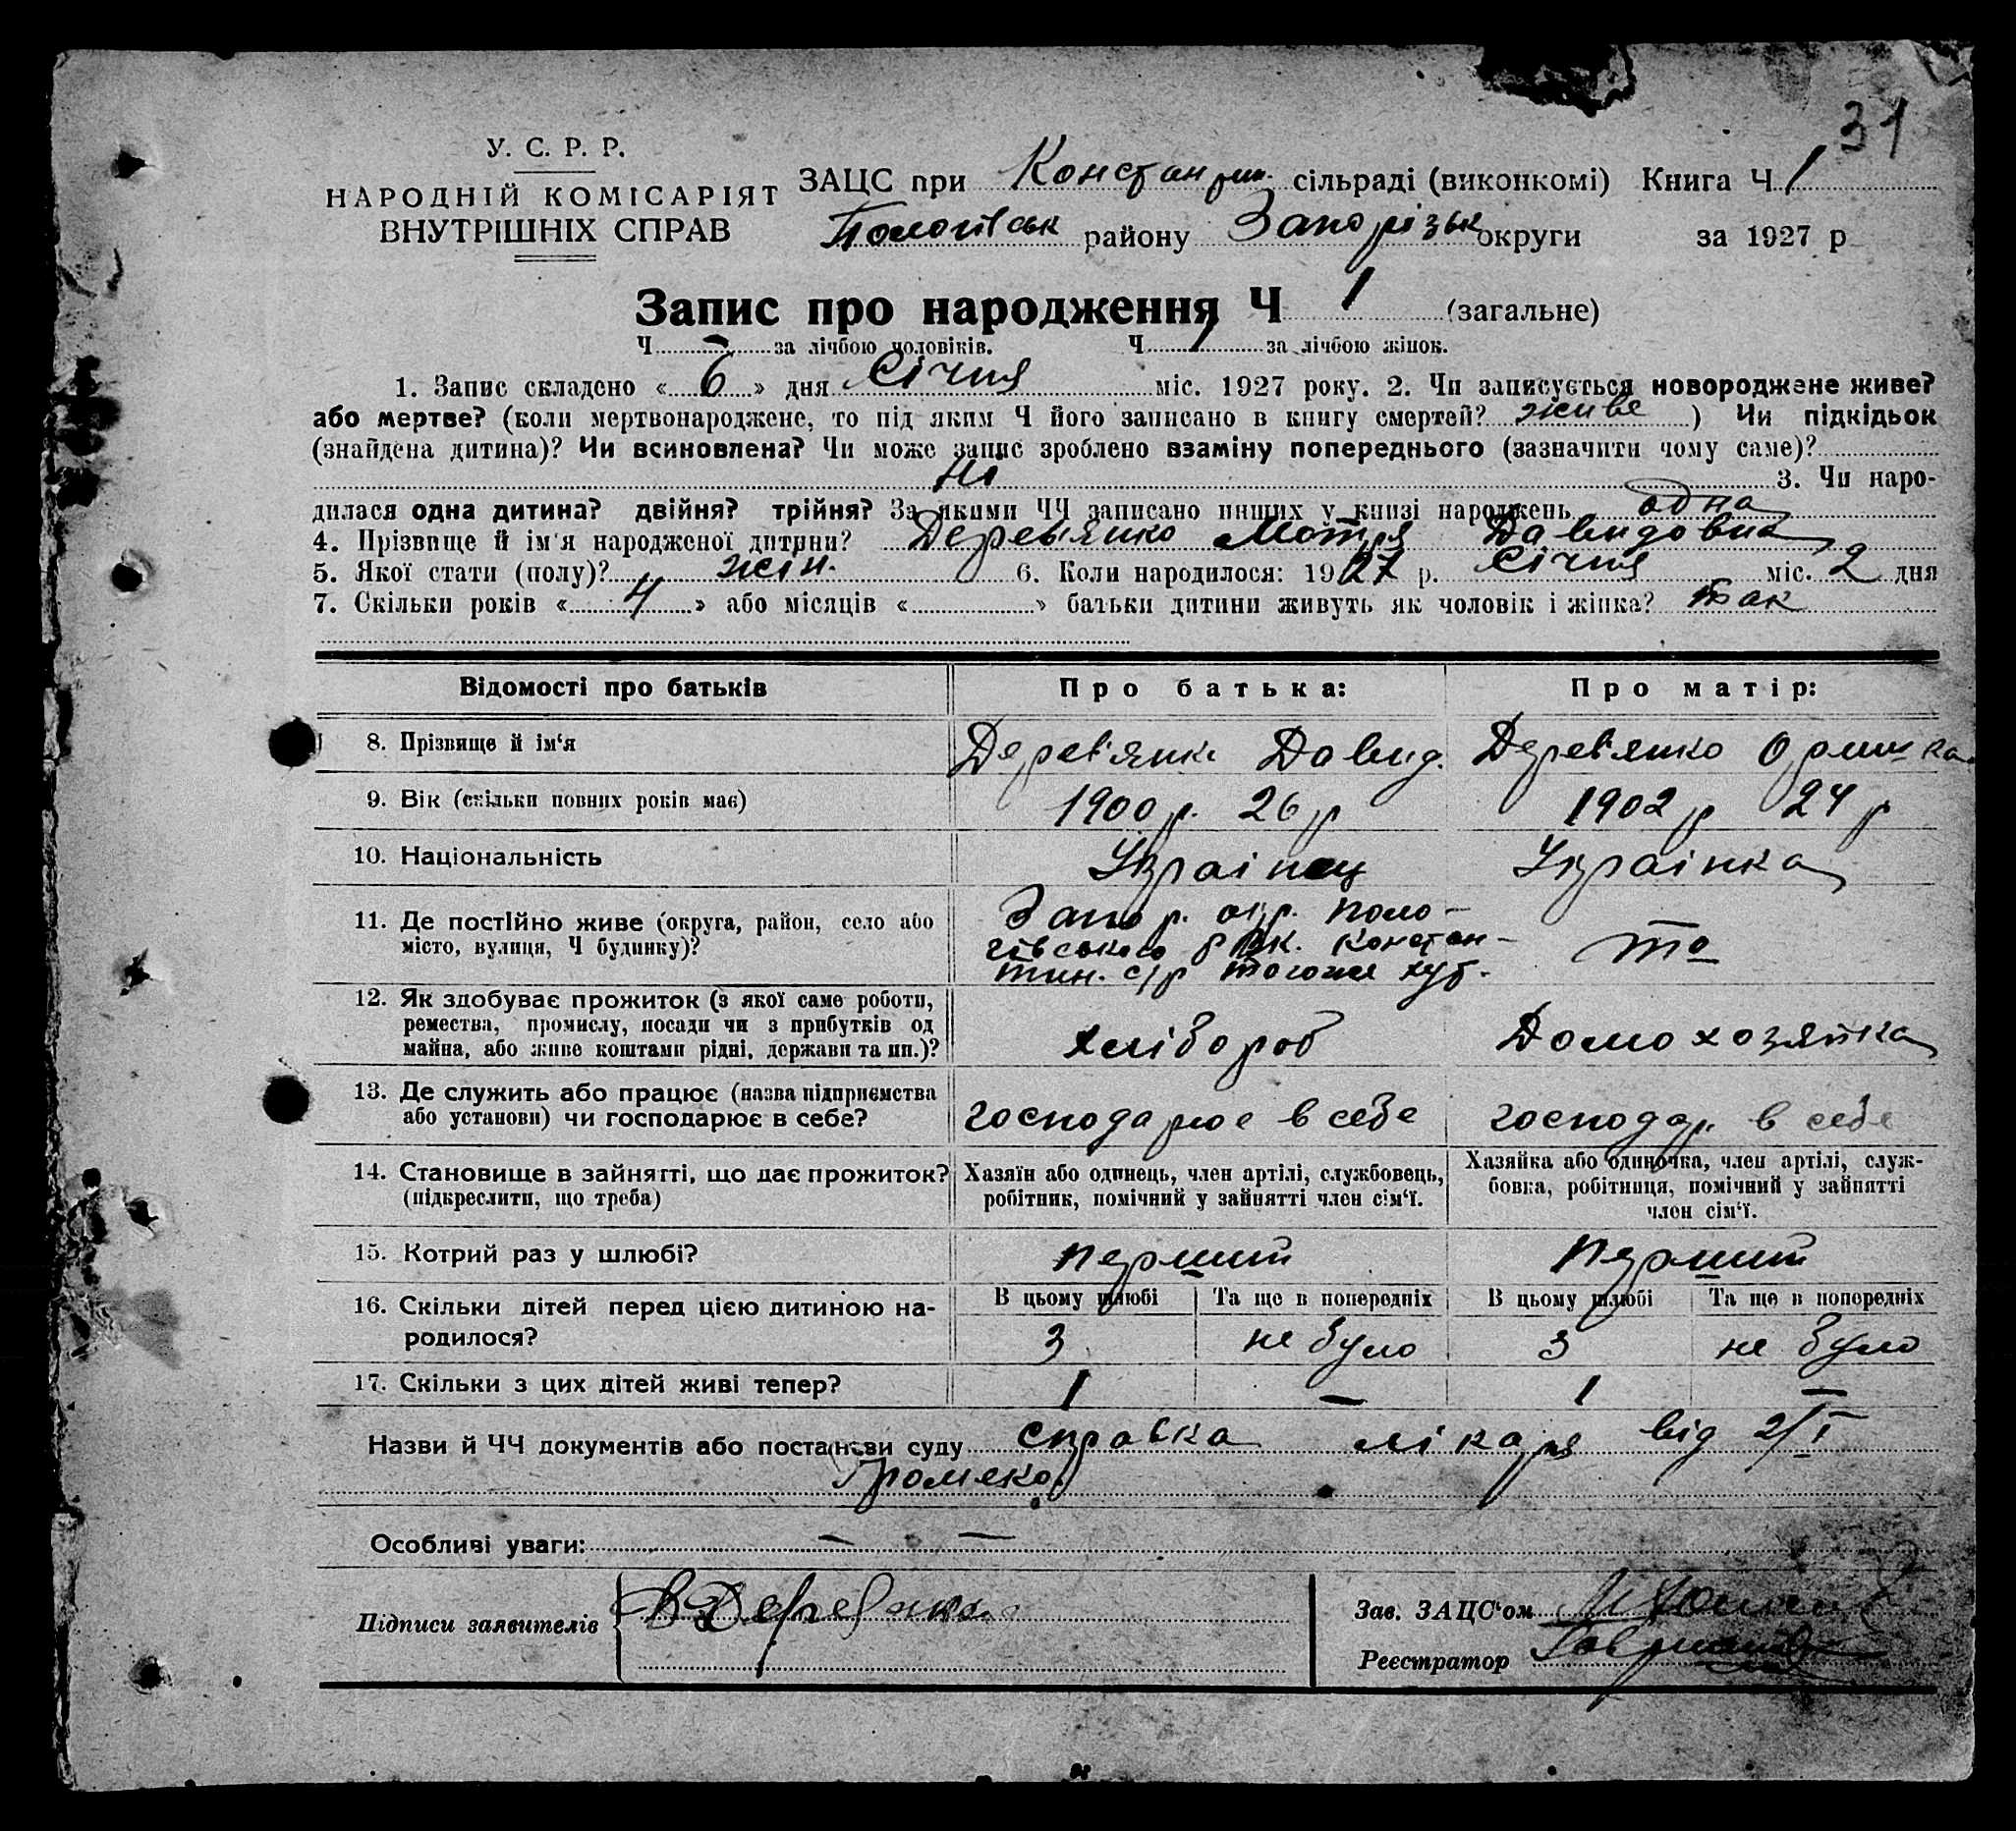 31
У. С. Р. Р.
НАРОДНІЙ КОМІСАРІЯТ
ВНУТРІШНІХ СПРАВ
ЗАЦС при Константин. сільраді (виконкомі) Книга Ч 1
Пологівськ району Запорізьк округи за 1927 р
Запис про народження Ч 1 (загальне)
Ч – за лічбою чоловіків. Ч 1 за лічбою жінок.
1. Запис складено « 6 » дня Січня міс. 1927 року. 2. Чи записується новороджене живе?
або мертве? (коли мертвонароджене, то під яким Ч його записано в книгу смертей? живе ) Чи підкідьок
(знайдена дитина)? Чи всиновлена? Чи може запис зроблено взаміну попереднього (зазначити чому саме)?
Ні 3. Чи наро-
дилася одна дитина? двійня? трійня? За якими ЧЧ записано инших у книзі народжень одна
4. Прізвище й ім'я народженої дитини? Дерев'янко Мотря Давидовна
5. Якої стати (полу)? жін. 6. Коли народилося: 1927 р. Січня міс. 2 дня
7. Скільки років « 4 » або місяців « » батьки дитини живуть як чоловік і жінка? так
Відомості про батьків Про батька: Про матір:
8. Прізвище й ім'я Дерев'янко Давид. Дерев'янко Оришка
9. Вік (скільки повних років має) 1900 р. 26 р 1902 р 24 р
10. Національність Українец Українка
11. Де постійно живе (округа, район, село або
місто, вулиця, Ч будинку)? Запор. окр. Поло-
гівського р Константин. с/р тогоже хут. то
12. Як здобуває прожиток (з якої саме роботи,
ремества, промислу, посади чи з прибутків од
майна, або живе коштами рідні, держави та ин.)? хлібороб Домохозяйка
13. Де служить або працює (назва підприємства
або установи) чи господарює в себе? господарює в себе господар. в себе
14. Становище в зайнятті, що дає прожиток?
(підкреслити, що треба)
Хазяїн або одинець, член артілі, службовець,
робітник, помічний у зайнятті член сім'ї.
Хазяйка або одиночка, член артілі, служ-
бовка, робітниця, помічний у зайнятті
член сім'ї.
15. Котрий раз у шлюбі? перший перший
16. Скільки дітей перед цією дитиною на-
родилося?
В цьому шлюбі Та ще в попередніх В цьому шлюбі Та ще в попередніх
3 не було 3 не було
17. Скільки з цих дітей живі тепер? 1 – 1 –
Назви й ЧЧ документів або постанови суду справка лікаря від 2/I
Особливі уваги: – –
Підписи заявителів
Зав. ЗАЦС'ом
Реєстратор